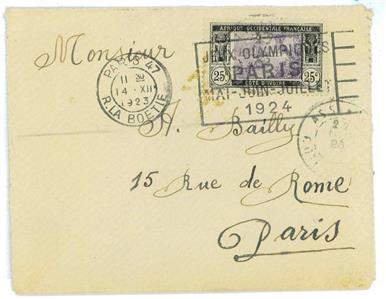 Monsieur
PARIS 47
11 20
14 - XII
1923
R. LA BOETIE
AFRIQUE OCCIDENTALE FRANÇAISE
25c 25c
CÔTE D'IVOIRE
JEUX OLYMPIQUES
PARIS
MAI-JUIN-JUILLET
1924
A. Bailly
15 Rue de Rome
Paris